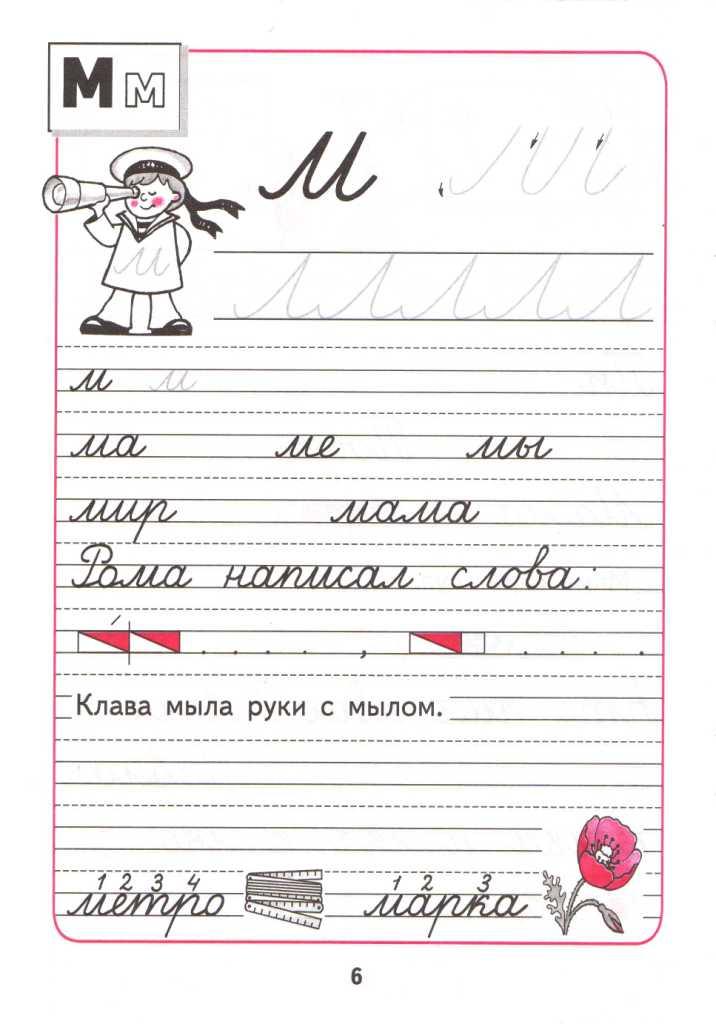 М м
м м
м
м м
ма ме мы
мир мама
Рома написал слова:
. . . . . , . . . . .
Клава мыла руки с мылом.
1 2 3 4 1 2 3
метро марка
6